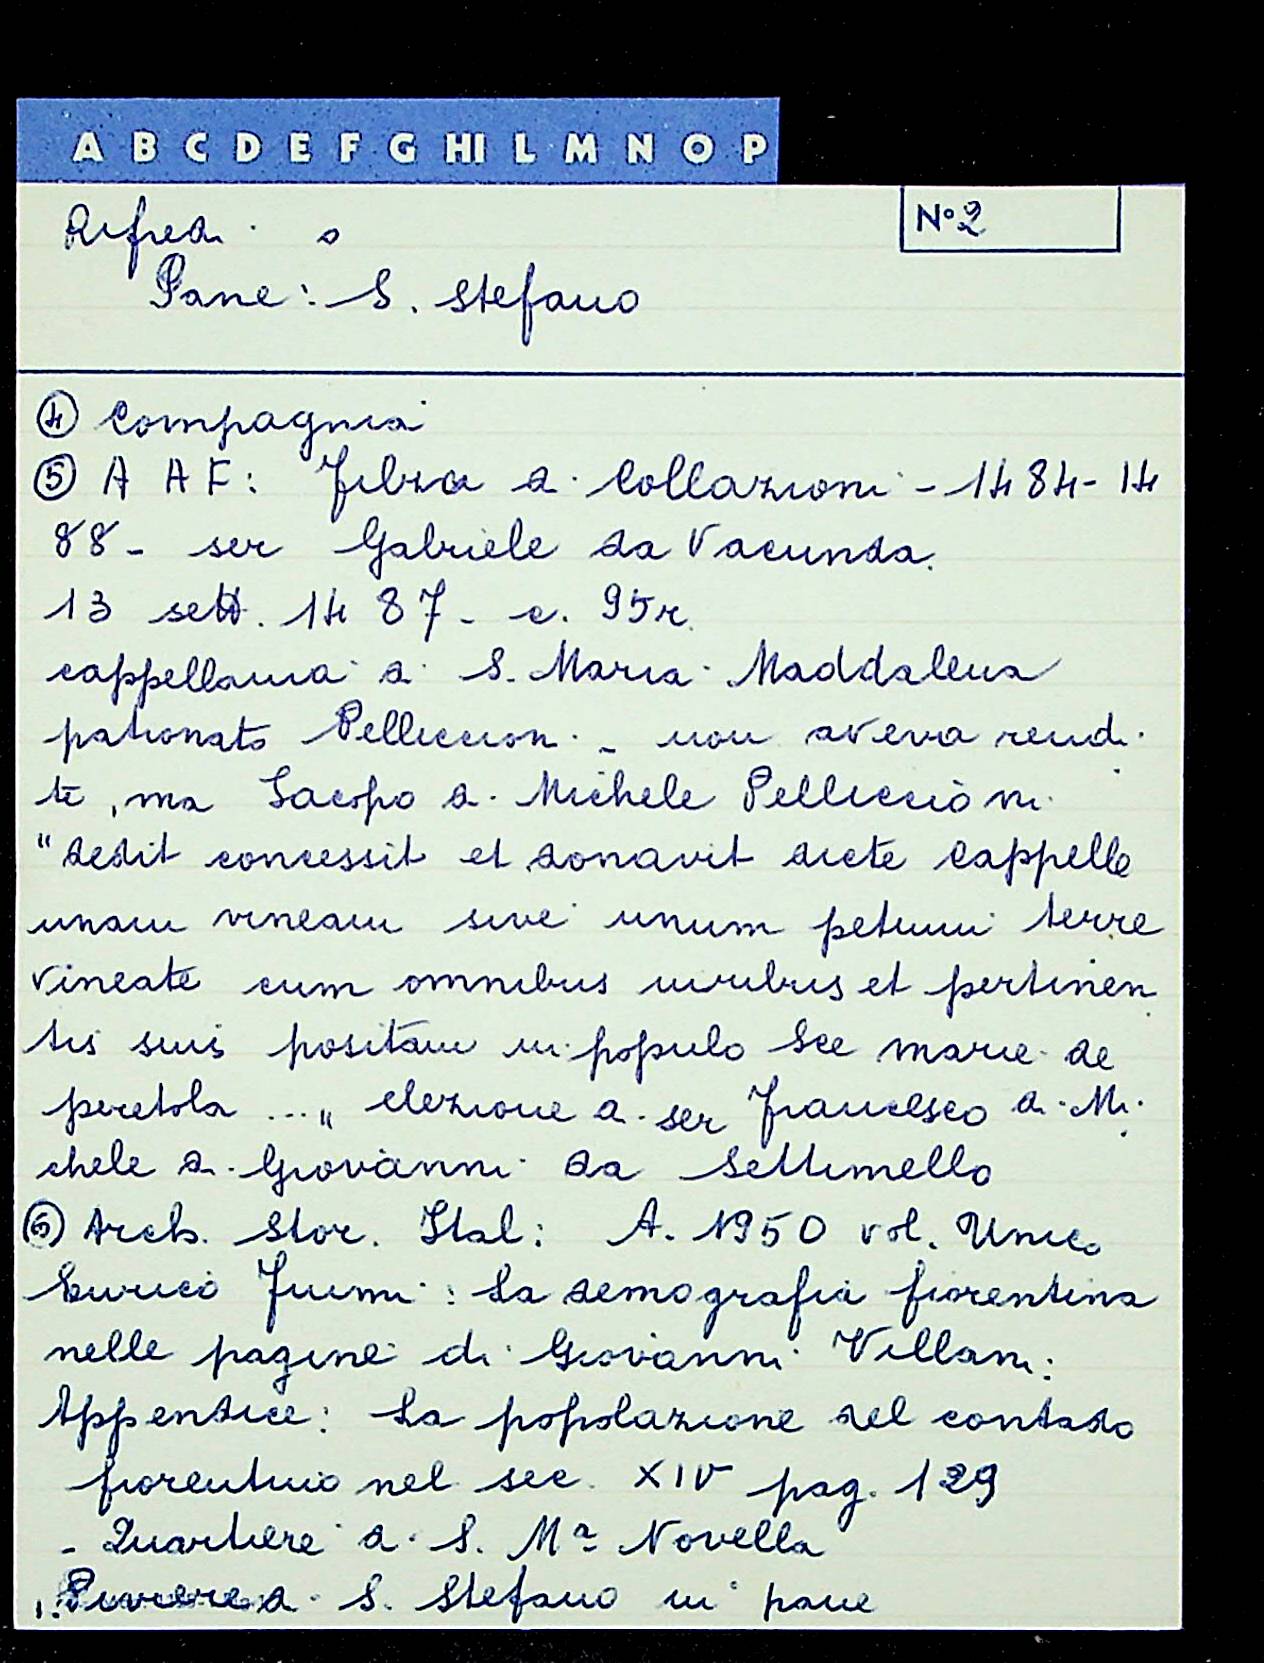 A B C D E F G HI L M N O P
Rifredi o
N° 2
Pane: S. Stefano
④ Compagnia
⑤ A A F: Filza di Collazioni - 1484-14
88 - ser Gabriele da Vacunda.
13 sett. 1487 - c. 95r.
cappellania di S. Maria Maddalena
patronato Pelliccioni - non aveva rendi
te, ma Iacopo di Michele Pelliccioni
"dedit concessit et donavit dicte Cappelle
unam vineam sive unum petium terre
vineate cum omnibus iuribus et pertinen
tis suis positam in populo Sce marie de
peretola ..." elezione di ser Francesco di Mi
chele di Giovanni da Settimello
⑥ Arch. Stor. Ital: A. 1950 vol. Unico
Enrico Fiumi: La demografia fiorentina
nelle pagine di Giovanni Villani:
Appendice: La popolazione del contado
fiorentino nel sec. XIV pag. 129
- Quartiere di S. Mª Novella
Piviere di S. Stefano in pane